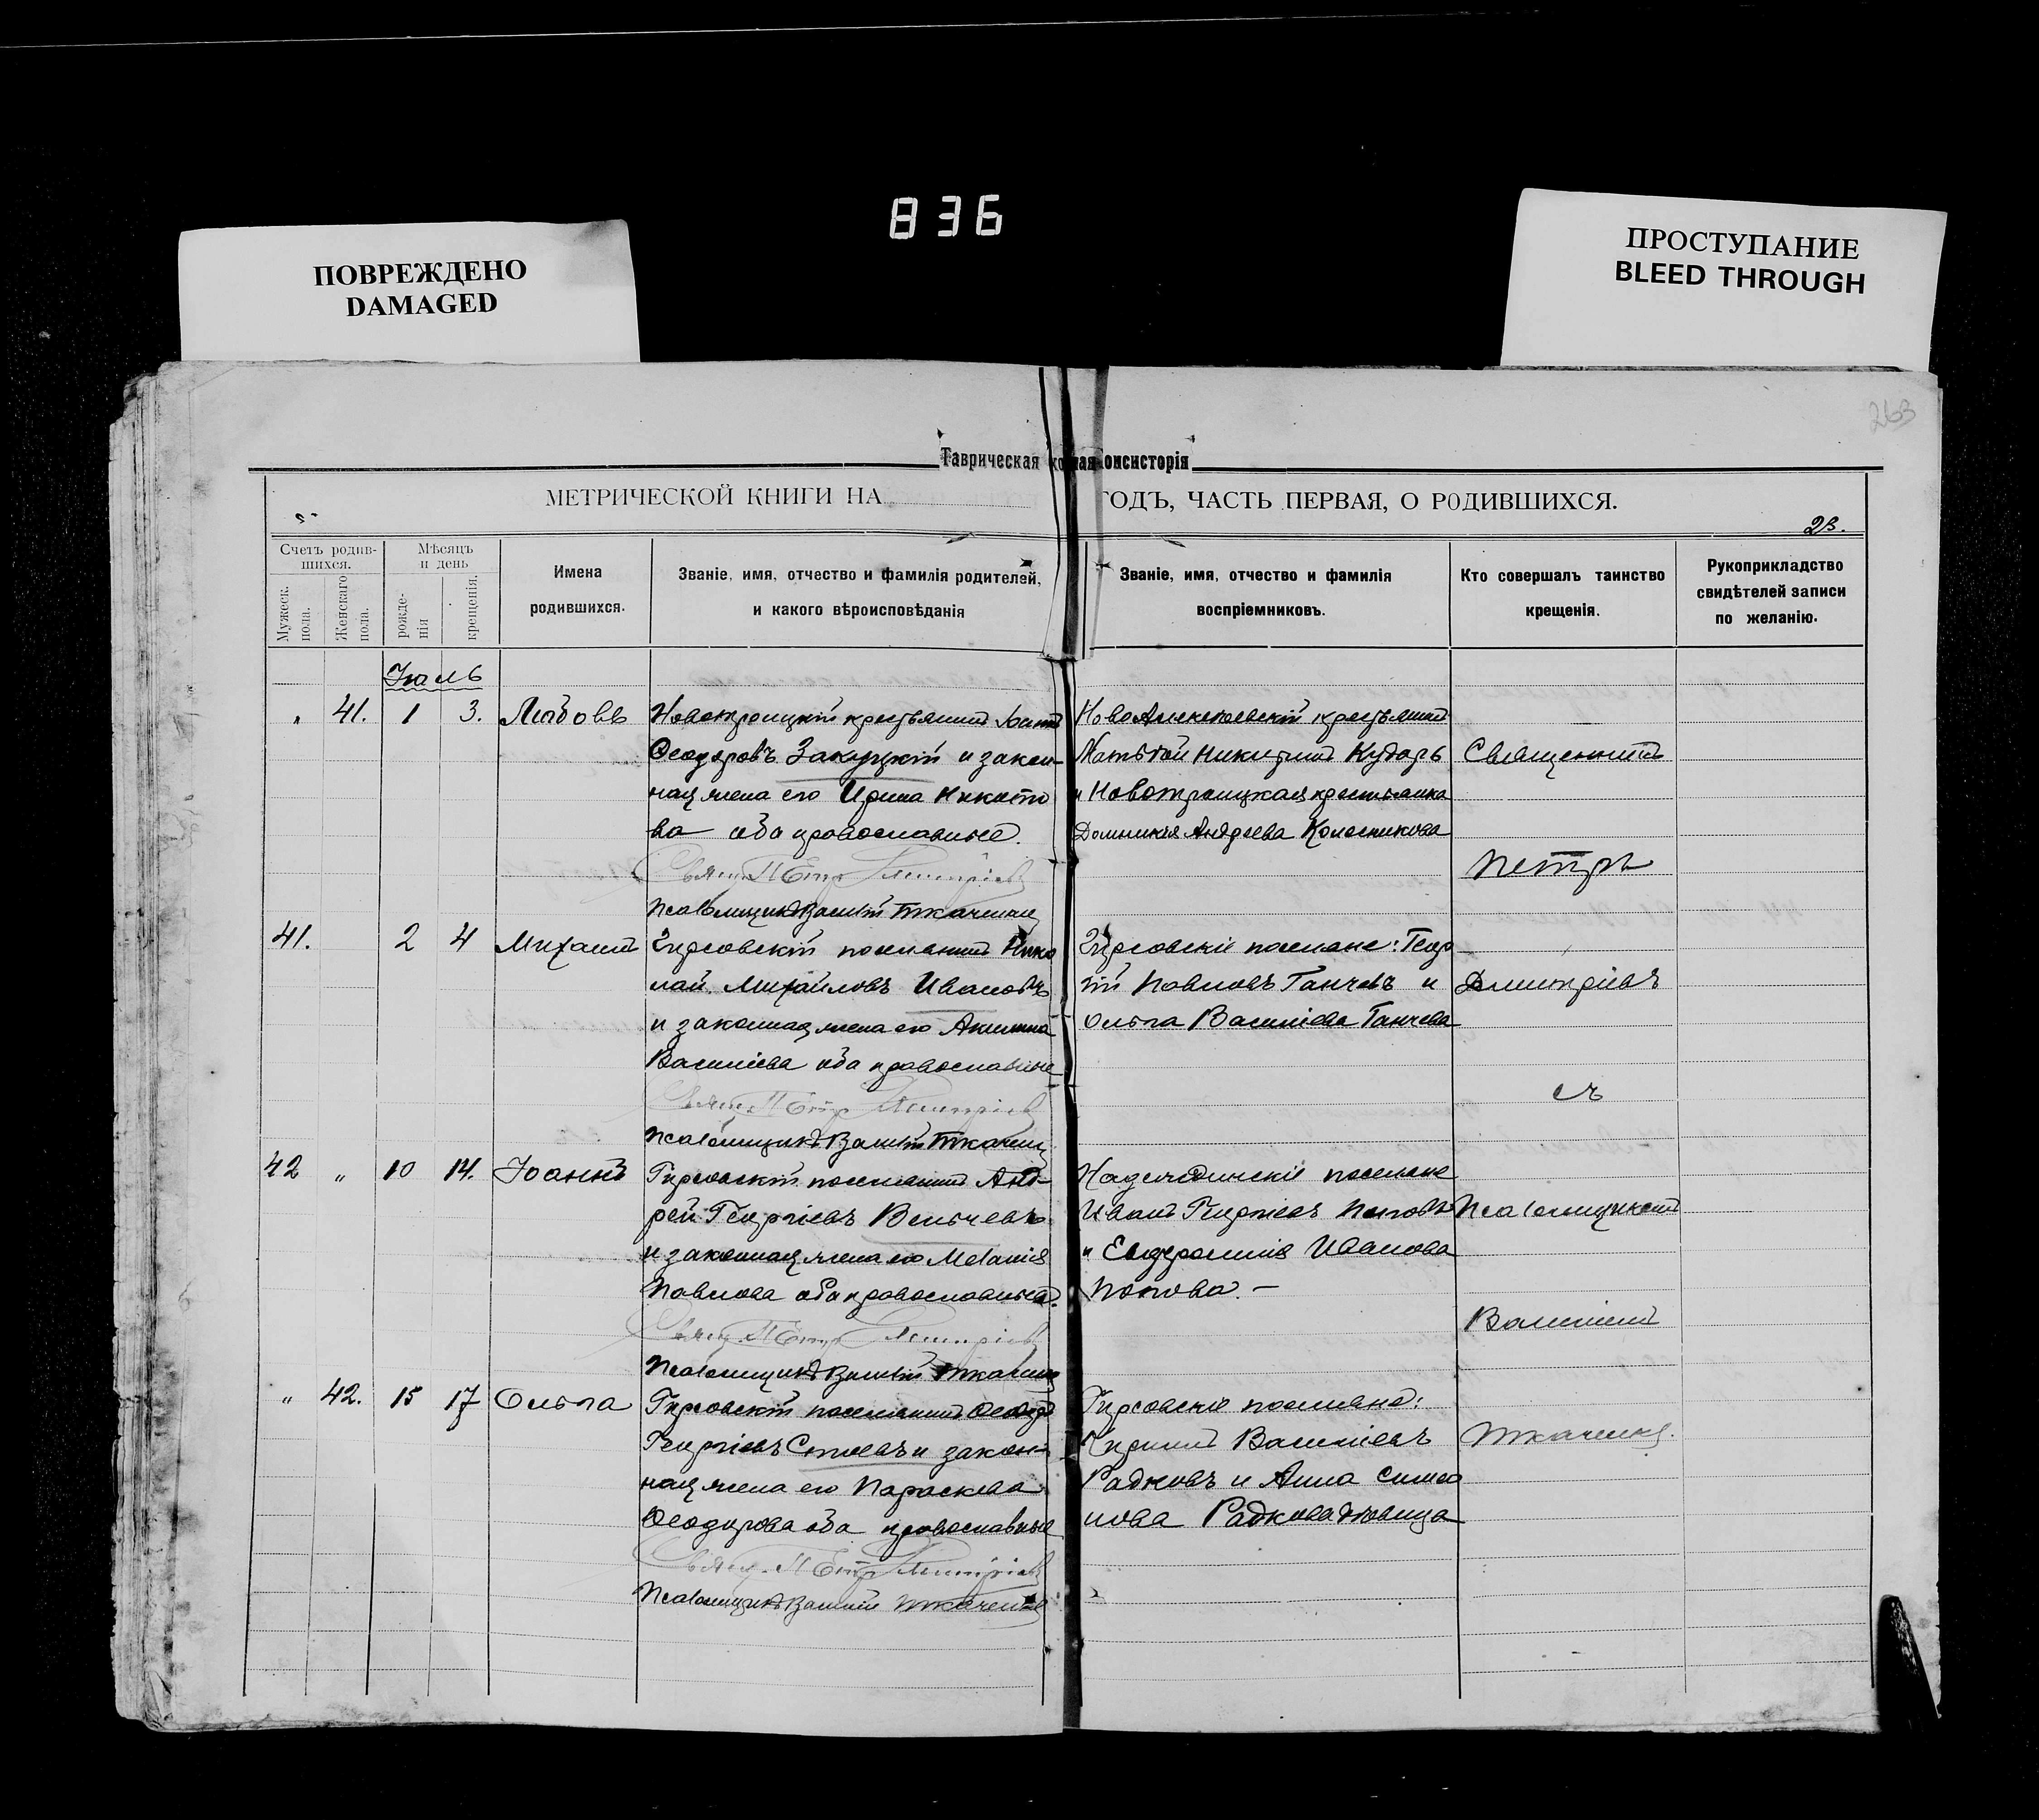 836
ПОВРЕЖДЕНО
DAMAGED
ПРОСТУПАНИЕ
BLEED THROUGH
263
Таврическая онсисторія
МЕТРИЧЕСКОЙ КНИГИ НА ГОДЪ, ЧАСТЬ ПЕРВАЯ, О РОДИВШИХСЯ.
23.
Счетъ родив-
шихся.
Мужеск.
пола.
Женскаго
пола.
Мѣсяцъ
и день
рожде-
нія
крещенія.
Имена
родившихся.
Званіе, имя, отчество и фамилія родителей,
и какого вѣроисповѣданія
Званіе, имя, отчество и фамилія
воспріемниковъ.
Кто совершалъ таинство
крещенія.
Рукоприкладство
свидѣтелей записи
по желанію.
Іюль
„ 41. 1 3. Любовь
Новотроицкій крестьянинъ Іоаннъ
Ѳеодоровъ Закуцкій и закон-
ная жена его Ирина Никито
ва оба православные.
Свящ. Петр Димитріев
Псаломщикъ Василій Ткаченко
НовоАлексѣевскій крестьянинъ
Матѳій Никитинъ Кударь
и Новотроицкая крестьянка
Домникія Андреева Колесникова
41. 2 4 Михаилъ
Гирсовскій поселянинъ Нико
лай Михаиловъ Ивановъ
и законная жена его Акилина
Василіева оба православные
Свящ. Петр Димитріев
Псаломщикъ Василій Ткаченко
Гирсовскіе поселяне: Геор
гій Павловъ Ганчевъ и
Ольга Василіева Ганчева
42 „ 10 14. Іоаннъ
Гирсовскій поселянинъ Анд-
рей Георгіевъ Вельчевъ
и законная жена его Меланія
Павлова оба православные.
Свящ. Петр Димитріев
Псаломщикъ Василій Ткаченко
поселяне
Иванъ Георгіевъ Поповъ
и Евфросинія Иванова
Попова. —
„ 42. 15 17 Ольга
Гирсовскій поселянинъ Ѳеодоръ
Георгіевъ Стоевъ и закон-
ная жена его Параскева
Ѳеодорова оба православные
Свящ. Петр Димитріев
Псаломщикъ Василій Ткаченко
Гирсовскіе поселяне:
Кириллъ Василіевъ
Радковъ и Анна Симео
нова Радкова дѣвица
Священникъ
Петръ
Димитріевъ
съ
Псаломщикомъ
Василіемъ
Ткаченко.